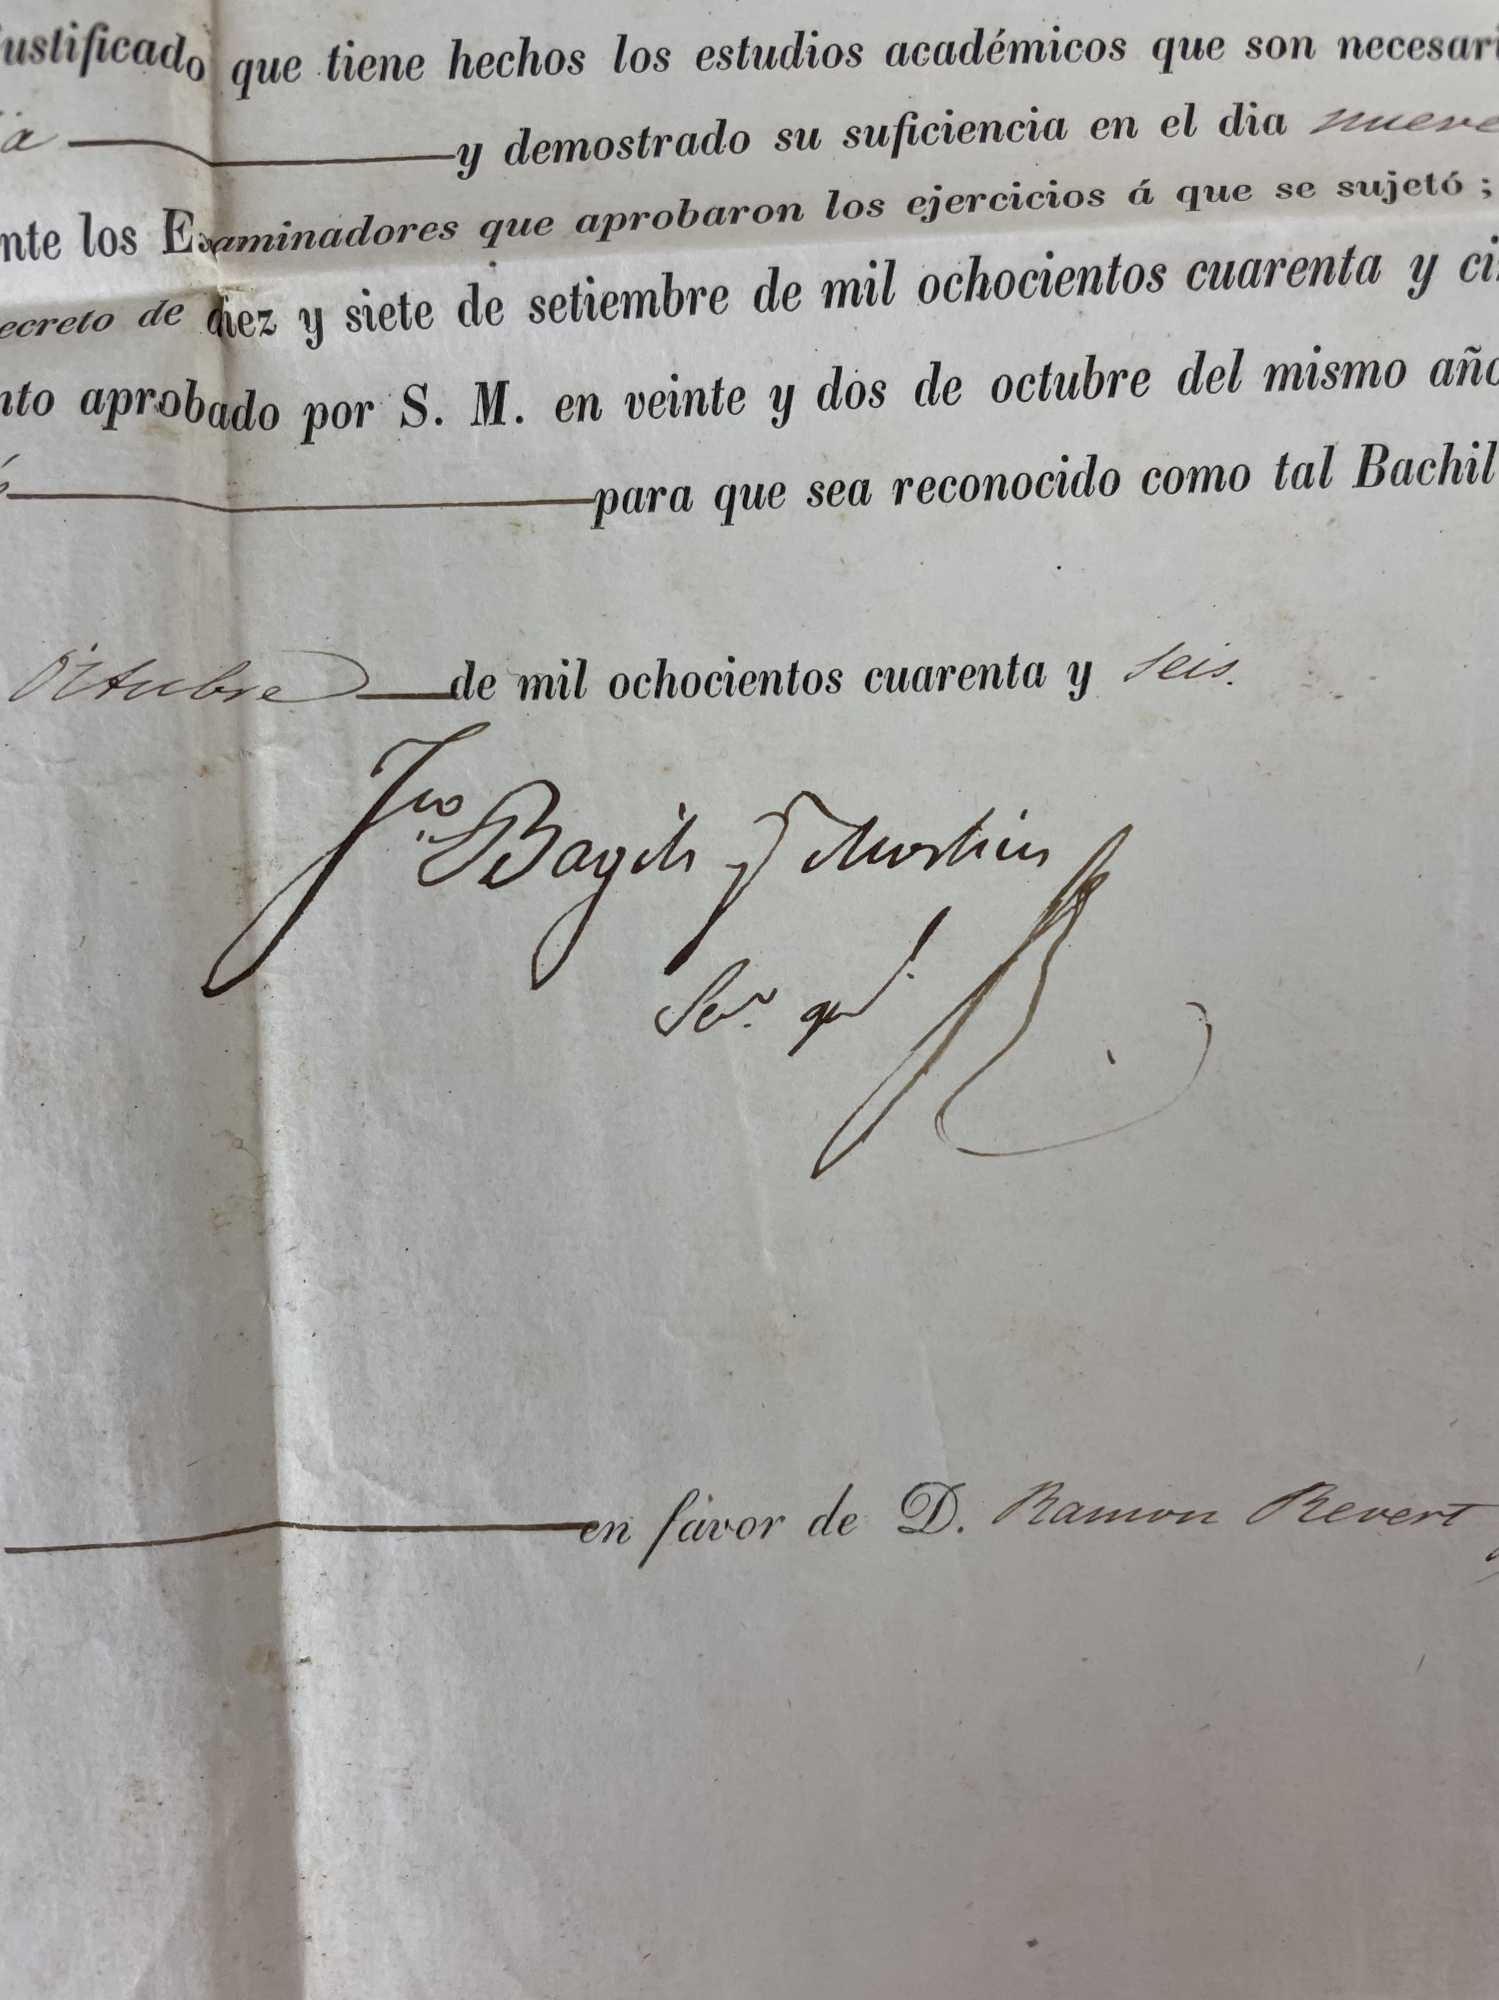 justificado que tiene hechos los estudios académicos que son necesari
ia y demostrado su suficiencia en el dia nueve
nte los Examinadores que aprobaron los ejercicios á que se sujetó;
ecreto de diez y siete de setiembre de mil ochocientos cuarenta y ci
nto aprobado por S. M. en veinte y dos de octubre del mismo año
para que sea reconocido como tal Bachil
Octubre de mil ochocientos cuarenta y seis.
Fco. Bagils y Morlius
Sec.º gral.
en favor de D. Ramon Revert y